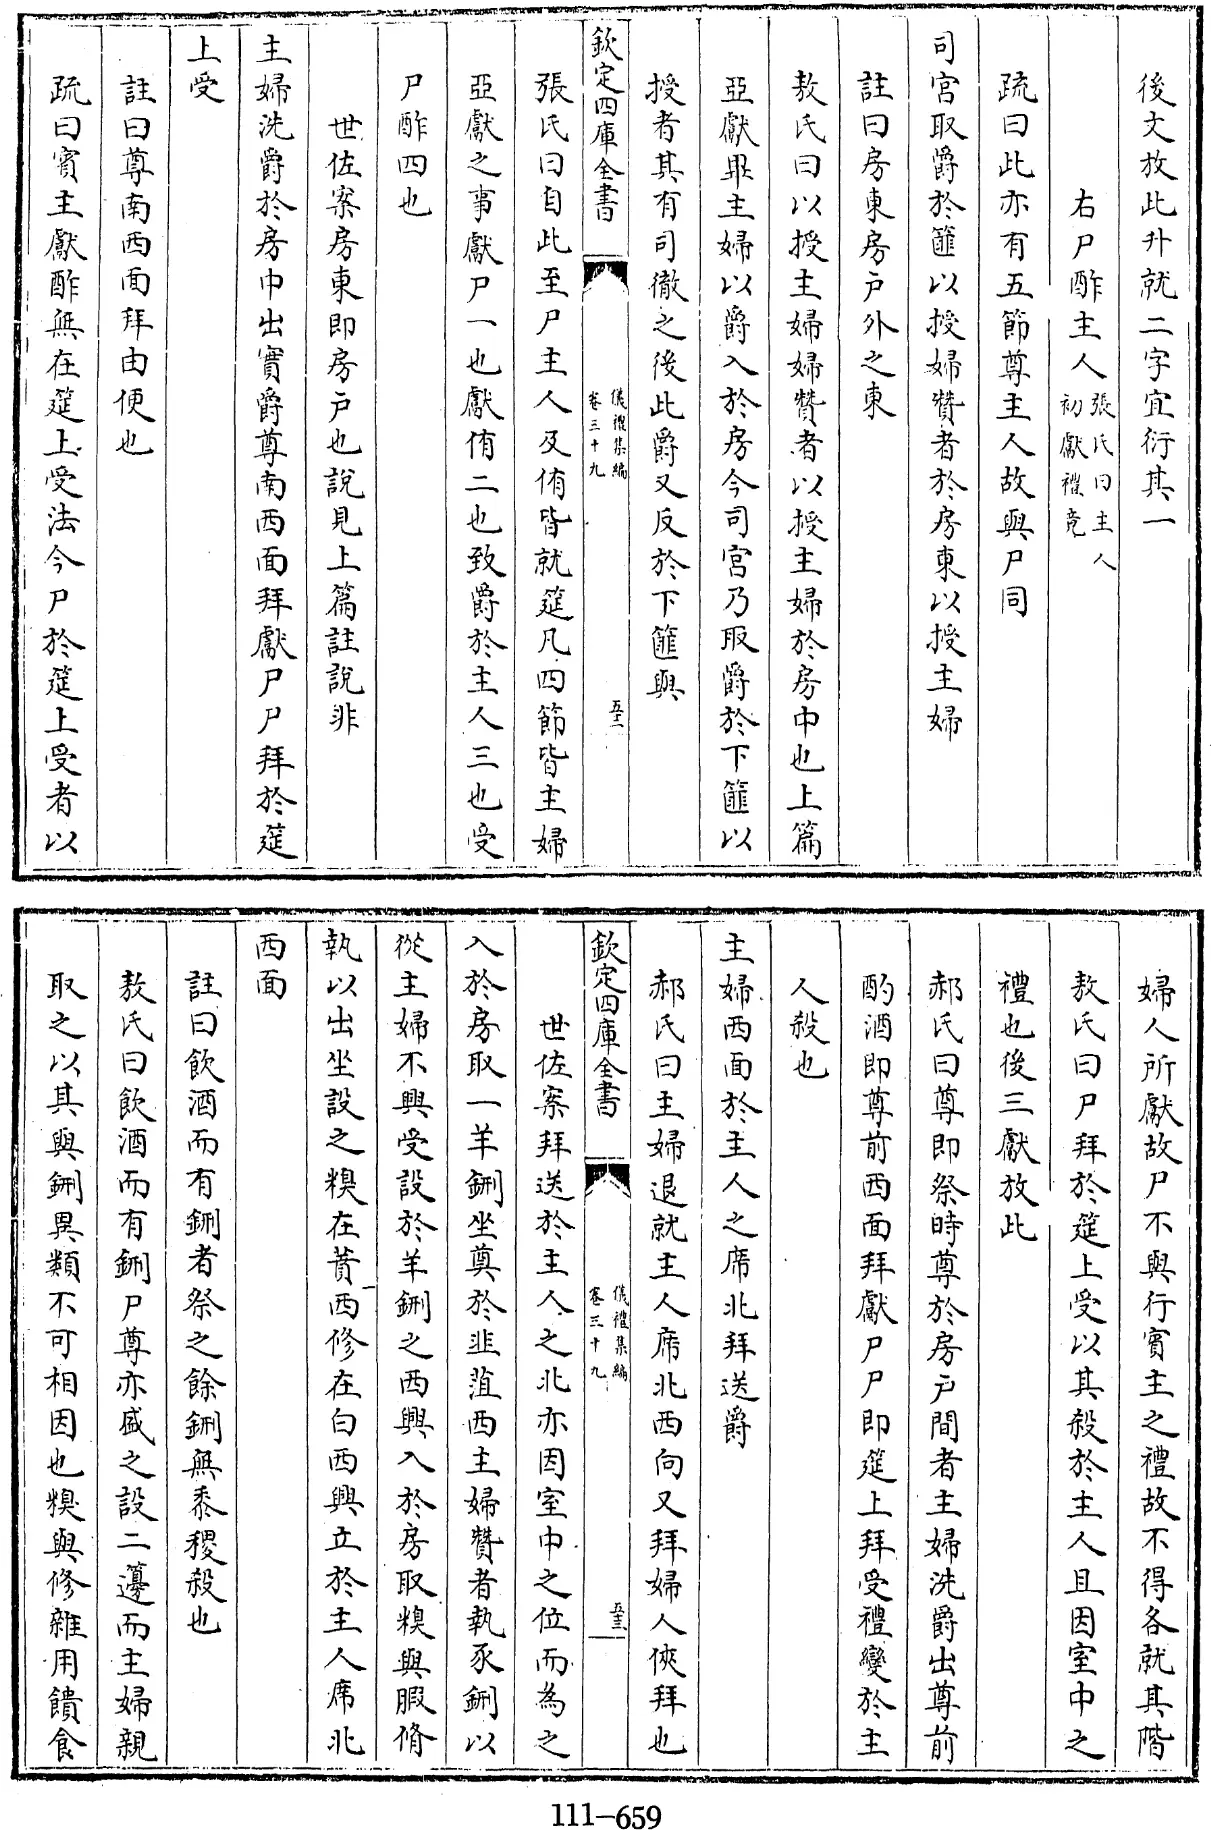 後文放此升就二字宜衍其一
右尸酢主人張氏曰主人初獻禮竟
疏曰此亦有五節尊主人故與尸同
司宮取爵於篚以授婦贊者於房東以授主婦
註曰房東房戶外之東
敖氏曰以授主婦婦贊者以授主婦於房中也上篇
亞獻畢主婦以爵入於房今司宮乃取爵於下篚以
授者其有司徹之後此爵又反於下篚與
欽定四庫全書
儀禮集編
卷三十九
五十二
張氏曰自此至尸主人及侑皆就筵凡四節皆主婦
亞獻之事獻尸一也獻侑二也致爵於主人三也受
尸酢四也
世佐案房東即房戶也說見上篇註說非
主婦洗爵於房中出實爵尊南西面拜獻尸尸拜於筵
上受
註曰尊南西面拜由便也
疏曰賓主獻酢無在筵上受法今尸於筵上受者以
婦人所獻故尸不與行賓主之禮故不得各就其階
敖氏曰尸拜於筵上受以其殺於主人且因室中之
禮也後三獻放此
郝氏曰尊即祭時尊於房戶間者主婦洗爵出尊前
酌酒即尊前西面拜獻尸尸即筵上拜受禮變於主
人殺也
主婦西面於主人之席北拜送爵
郝氏曰主婦退就主人席北西向又拜婦人俠拜也
欽定四庫全書
儀禮集編
卷三十九
五十三
世佐案拜送於主人之北亦因室中之位而為之
入於房取一羊鉶坐奠於韭菹西主婦贊者執豕鉶以
從主婦不興受設於羊鉶之西興入於房取糗與腶脩
執以出坐設之糗在蕡西修在白西興立於主人席北
西面
註曰飲酒而有鉶者祭之餘鉶無黍稷殺也
敖氏曰飲酒而有鉶尸尊亦盛之設二籩而主婦親
取之以其與鉶異類不可相因也糗與修雜用饋食
111-659